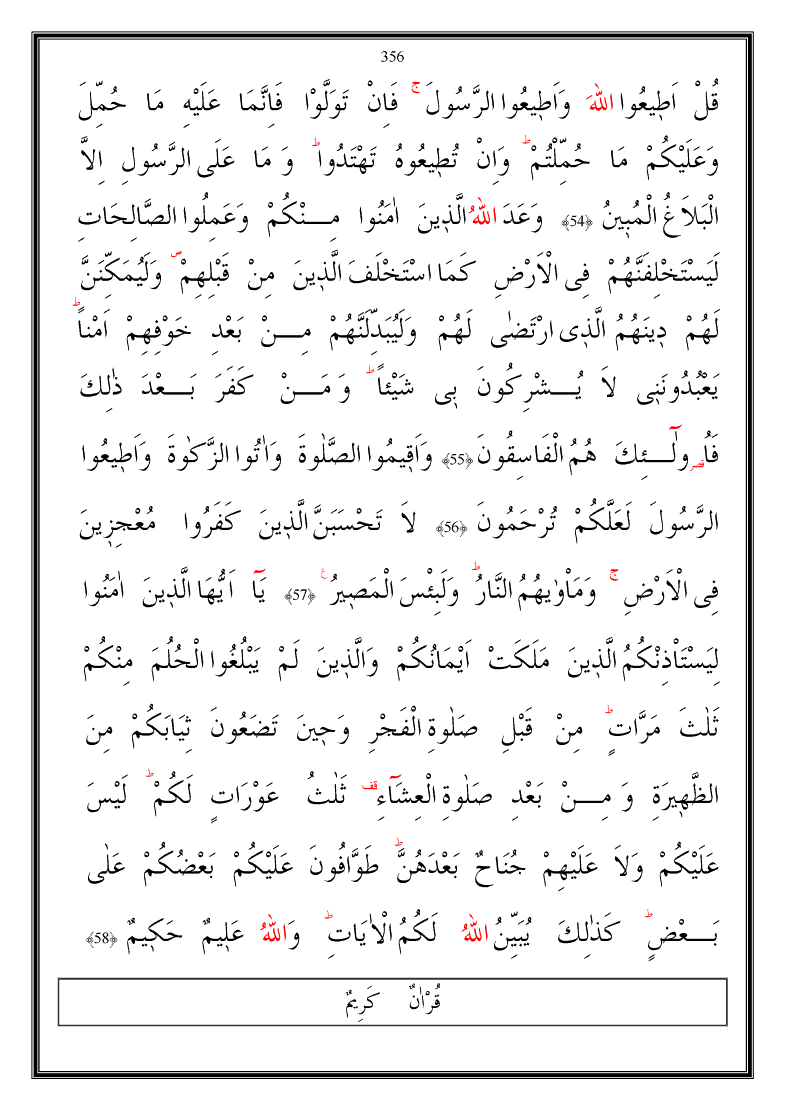 356
قُلْ اَطٖيعُوا اللّٰهَ وَاَطٖيعُوا الرَّسُولَۚ فَاِنْ تَوَلَّوْا فَاِنَّمَا عَلَيْهِ مَا حُمِّلَ
وَعَلَيْكُمْ مَا حُمِّلْتُمْؕ وَاِنْ تُطٖيعُوهُ تَهْتَدُواؕ وَ مَا عَلَى الرَّسُولِ اِلاَّ
الْبَلاَغُ الْمُبٖينُ ﴿54﴾ وَعَدَ اللّٰهُ الَّذٖينَ اٰمَنُوا مِـــنْكُمْ وَعَمِلُوا الصَّالِحَاتِ
لَيَسْتَخْلِفَنَّهُمْ فِى الْاَرْضِ كَمَا اسْتَخْلَفَ الَّذٖينَ مِنْ قَبْلِهِمْࣕ وَلَيُمَكِّنَنَّ
لَهُمْ دٖينَهُمُ الَّذِى ارْتَضٰى لَهُمْ وَلَيُبَدِّلَنَّهُمْ مِـــنْ بَعْدِ خَوْفِهِمْ اَمْناًؕ
يَعْبُدُونَنٖى لاَ يُـــشْرِكُونَ بٖى شَيْئاًؕ وَ مَـــنْ كَفَرَ بَـــعْدَ ذٰلِكَ
فَاُولٰٓـــئِكَ هُمُ الْفَاسِقُونَ ﴿55﴾ وَاَقٖيمُوا الصَّلٰوةَ وَاٰتُوا الزَّكٰوةَ وَاَطٖيعُوا
الرَّسُولَ لَعَلَّكُمْ تُرْحَمُونَ ﴿56﴾ لاَ تَحْسَبَنَّ الَّذٖينَ كَفَرُوا مُعْجِزٖينَ
فِى الْاَرْضِۚ وَمَاْوٰيهُمُ النَّارُؕ وَلَبِئْسَ الْمَصٖيرُ ﴿57﴾ يَٓا اَيُّهَا الَّذٖينَ اٰمَنُوا
لِيَسْتَاْذِنْكُمُ الَّذٖينَ مَلَكَتْ اَيْمَانُكُمْ وَالَّذٖينَ لَمْ يَبْلُغُوا الْحُلُمَ مِنْكُمْ
ثَلٰثَ مَرَّاتٍؕ مِنْ قَبْلِ صَلٰوةِ الْفَجْرِ وَحٖينَ تَضَعُونَ ثِيَابَكُمْ مِنَ
الظَّهٖيرَةِ وَ مِـــنْ بَعْدِ صَلٰوةِ الْعِشَٓاءِ قف ثَلٰثُ عَوْرَاتٍ لَكُمْؕ لَيْسَ
عَلَيْكُمْ وَلاَ عَلَيْهِمْ جُنَاحٌ بَعْدَهُنَّؕ طَوَّافُونَ عَلَيْكُمْ بَعْضُكُمْ عَلٰى
بَـــعْضٍؕ كَذٰلِكَ يُبَيِّنُ اللّٰهُ لَكُمُ الْاٰيَاتِؕ وَاللّٰهُ عَلٖيمٌ حَكٖيمٌ ﴿58﴾
قُرْاٰنٌ كَرِيمٌ